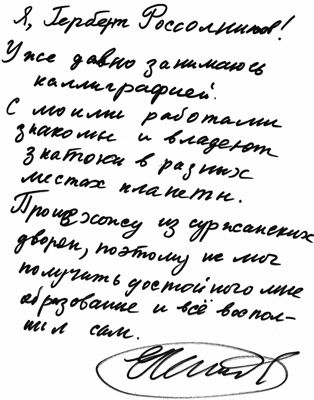 Я, Герберт Россолников!
Уже давно занимаюсь
каллиграфией.
С моими работами
знакомы и владеют
знатоки в разных
местах планеты.
Происхожу из суржанских
дворян, поэтому не мог
получить достойного мне
образование и всё воспол-
нил сам.